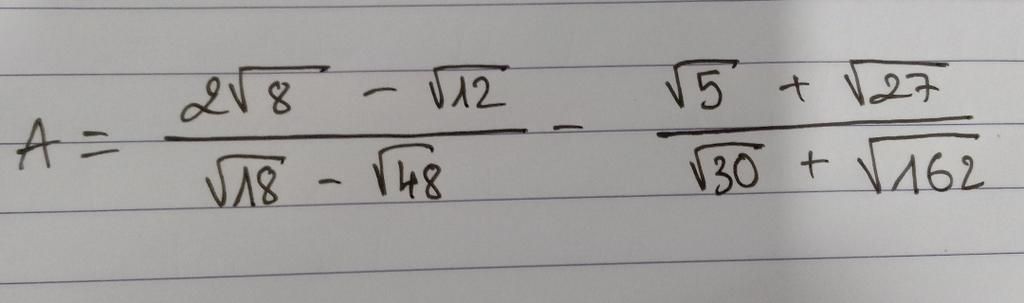 A = \frac{2\sqrt{8} - \sqrt{12}}{\sqrt{18} - \sqrt{48}} - \frac{\sqrt{5} + \sqrt{27}}{\sqrt{30} + \sqrt{162}}